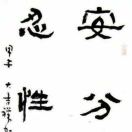 安分
忍性
甲午 大吉祥